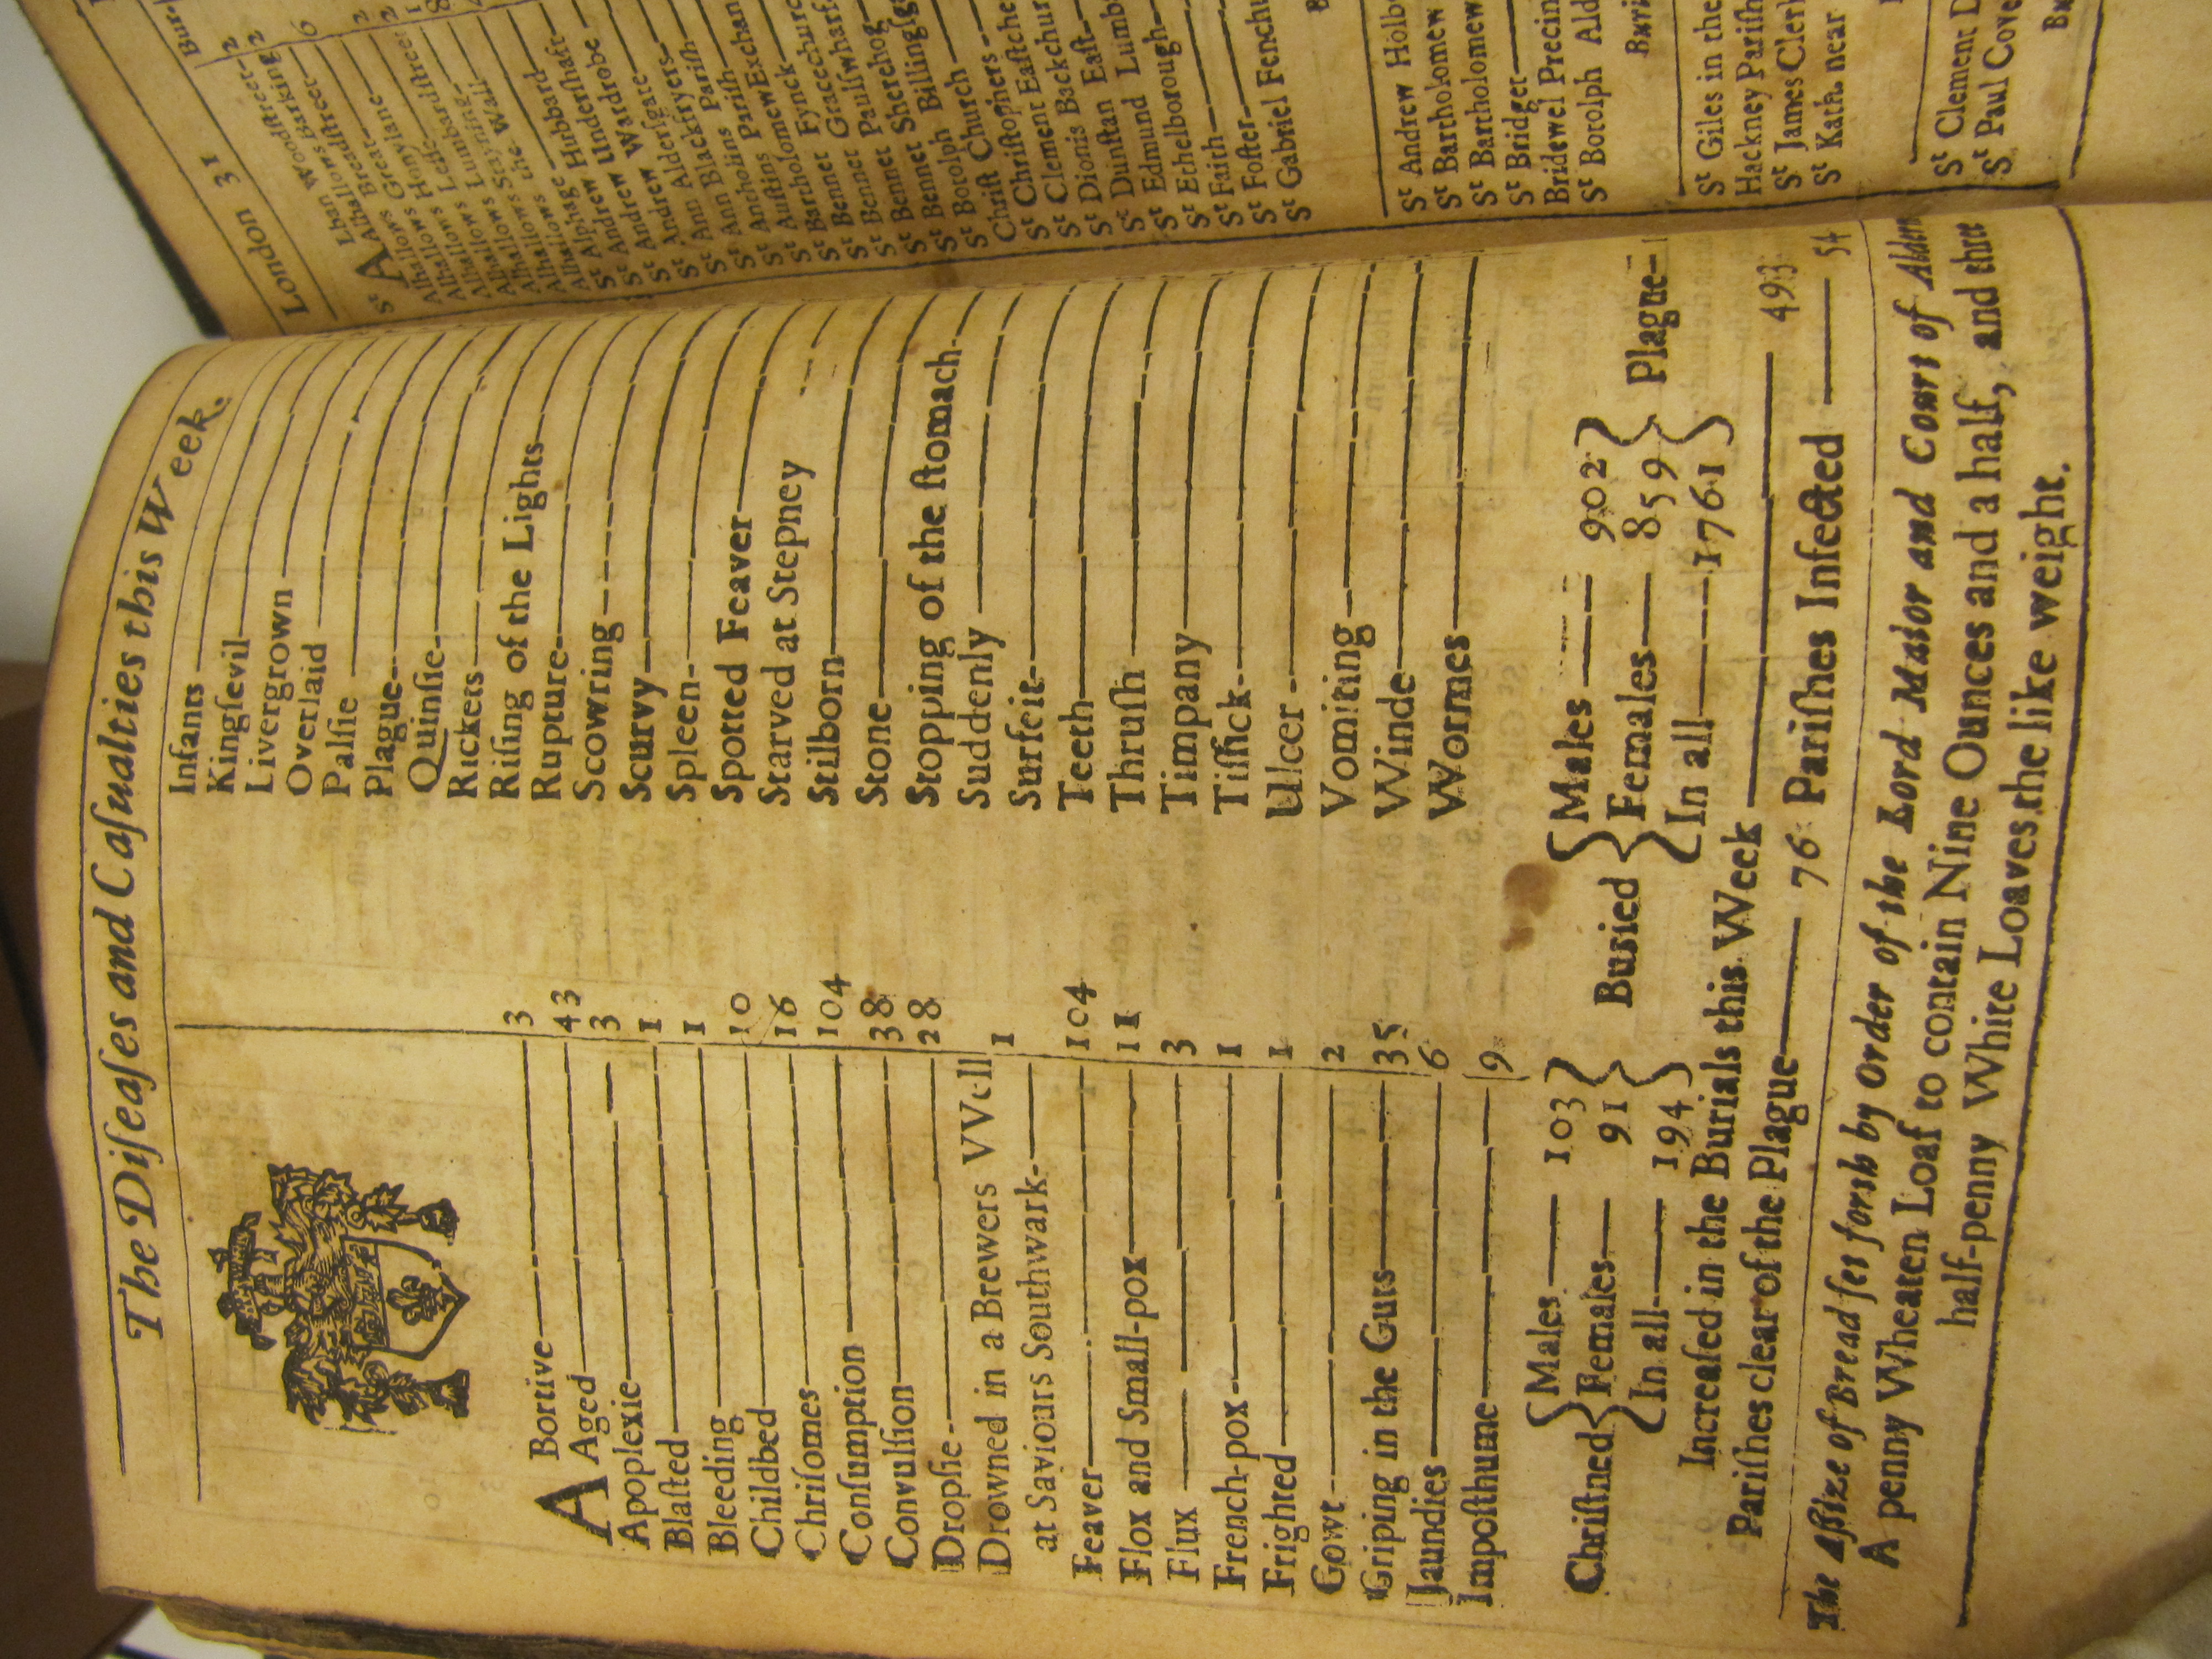 The Diſeaſes and Caſualties this Week.
ABortive 3
Aged 43
Apoplexie 3
Blaſted 1
Bleeding 1
Childbed 10
Chriſomes 16
Conſumption 104
Convulſion 38
Dropſie 28
Drowned in a Brewers VVell
at Saviours Southwark 1
Feaver 104
Flox and Small-pox 11
Flux 3
French-pox 1
Frighted 1
Gowt 2
Griping in the Guts 35
Jaundies 6
Impoſthume 9
Infants
Kingſevil
Livergrown
Overlaid
Palſie
Plague
Quinſie
Rickets
Riſing of the Lights
Rupture
Scowring
Scurvy
Spleen
Spotted Feaver
Starved at Stepney
Stilborn
Stone
Stopping of the ſtomach
Suddenly
Surfeit
Teeth
Thruſh
Timpany
Tiſſick
Ulcer
Vomiting
Winde
Wormes
Chriſtned { Males 103 Females 91 In all 194 }
Buried { Males 902 Females 859 In all 1761 } Plague
Increaſed in the Burials this Week 493
Pariſhes clear of the Plague 76 Pariſhes Infected 54
The Aſſize of Bread ſet forth by Order of the Lord Maior and Court of
A penny Wheaten Loaf to contain Nine Ounces and a half, and three
half-penny White Loaves the like weight.
London 31
Bur.
St ALban Woodſtreet 2
Alhallows Barking 2
Alhallows Breadſtreet 6
Alhallows Great 2
Alhallows Honylane 2
Alhallows Leſſe 1
Alhallows Lumbardſtreet 8
Alhallows Stayning
Alhallows the Wall
Alphage
St Andrew Hubbard
St Andrew Underſhaft
St Andrew Wardrobe
St Ann Alderſgate
St Ann Blackfryers
St Antholins Pariſh
St Auſtins Pariſh
St Bartholomew Exchan
St Bennet Fynck
St Bennet Gracechurc
St Bennet Paulſwharf
St Bennet Sherehog
St Botolph Billingſg
Chriſt Church
St Chriſtophers
St Clement Eaſtche
St Dionis Backchur
St Dunſtan Eaſt
St Edmund Lumb
St Ethelborough
St Faith
St Foſter
St Gabriel Fenchu
St Andrew Holb
St Bartholomew
St Bartholomew
St Bridget
Bridewel Precin
St Botolph Ald
Buri
St Giles in the
Hackney Pariſh
St James Cler
St Kath. near
St Clement D
St Paul Cove
Bu